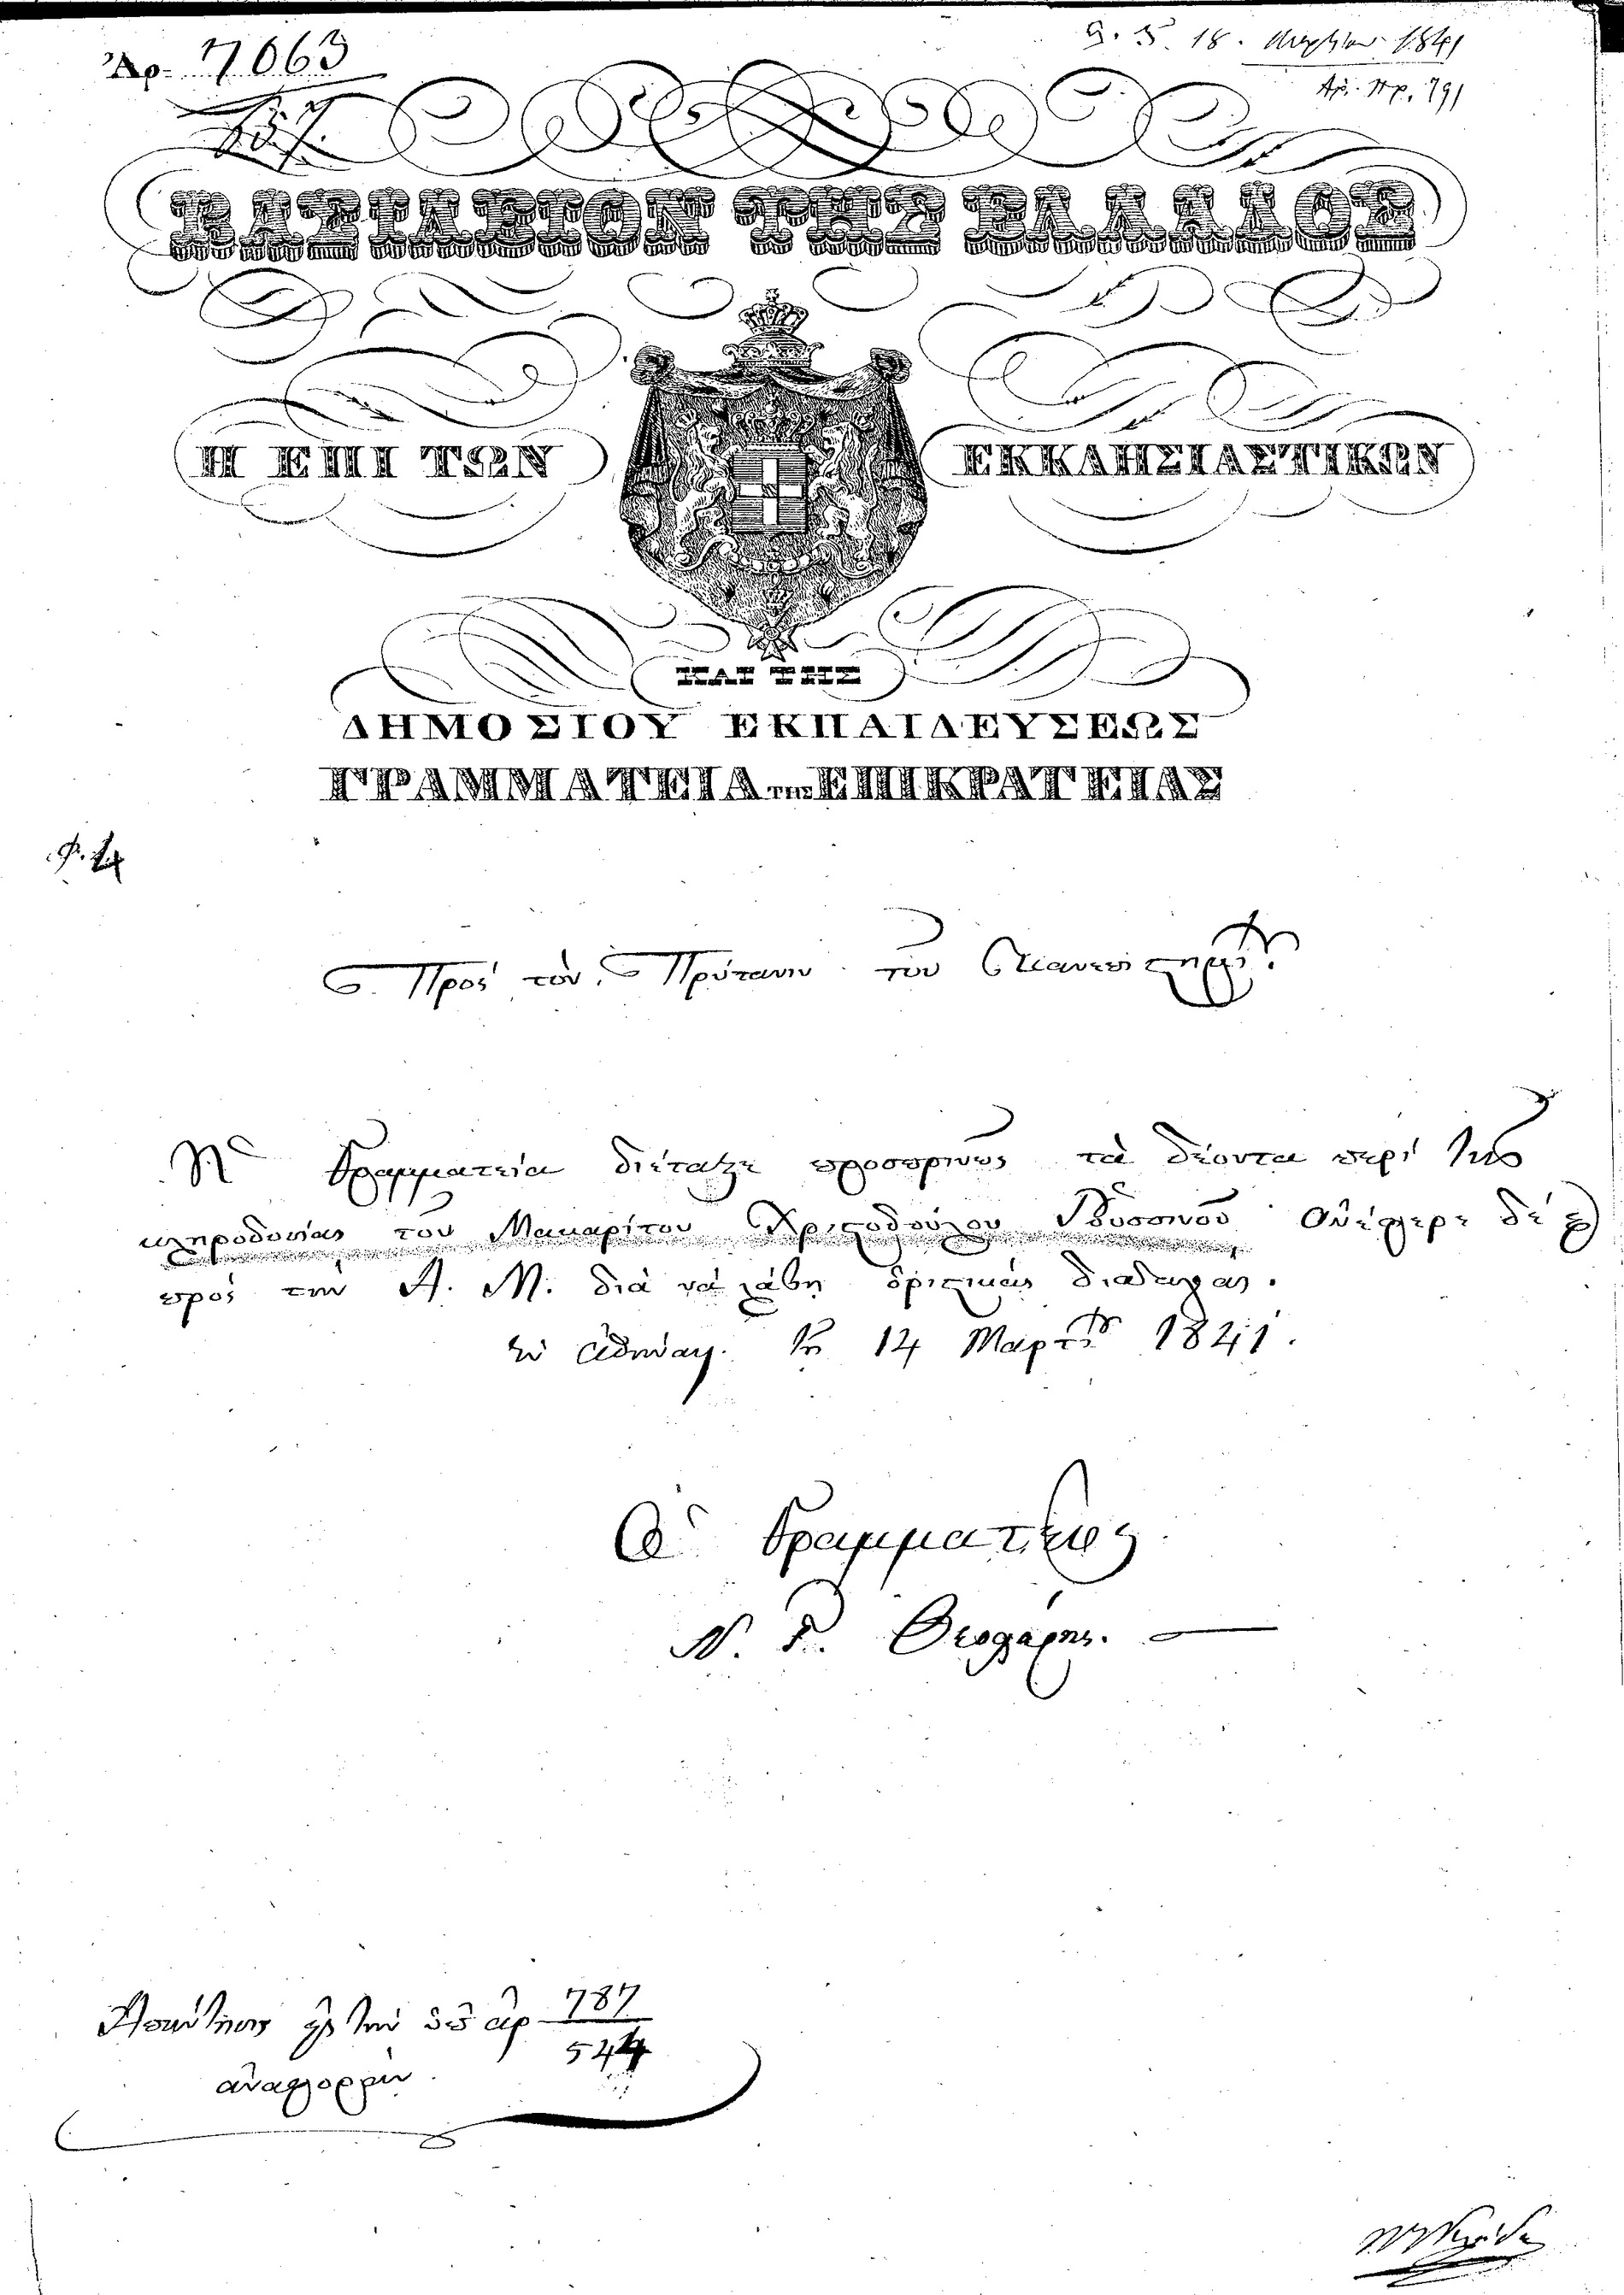 Ἀρ. 7063
18. Μαρτίου 1841
Ἀρ. Πρ. 791
ΒΑΣΙΛΕΙΟΝ ΤΗΣ ΕΛΛΑΔΟΣ
Η ΕΠΙ ΤΩΝ ΕΚΚΛΗΣΙΑΣΤΙΚΩΝ
ΚΑΙ ΤΗΣ
ΔΗΜΟΣΙΟΥ ΕΚΠΑΙΔΕΥΣΕΩΣ
ΓΡΑΜΜΑΤΕΙΑ της ΕΠΙΚΡΑΤΕΙΑΣ
Πρὸς τὸν Πρύτανιν τοῦ Πανεπιστημίου
Ἡ Γραμματεία διέταξε προσωρινῶς τὰ δέοντα περὶ τῆς
κληρονομίας τοῦ Μακαρίτου Χριστοδούλου Ἀνέφερε δὲ
πρὸς τὴν Α. Μ. διὰ νὰ λάβῃ ὁριστικὰς διαταγάς.
Ἐν Ἀθήναις τῇ 14 Μαρτίου 1841.
Ὁ Γραμματεύς
Ν. Γ. Θεοχάρης.
τὴν ὑπ' ἀρ 787
544
ἀναφοράν